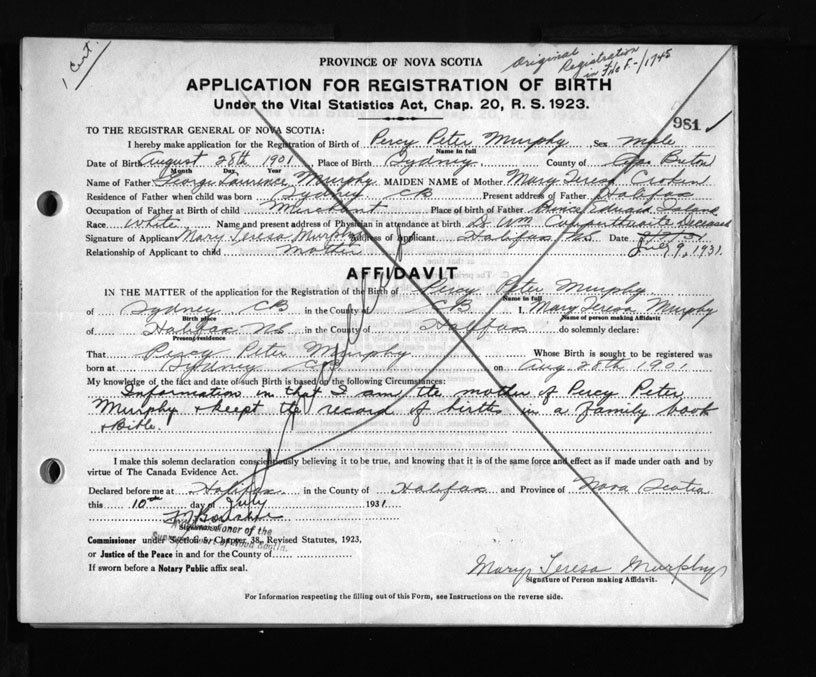 1 Cert.
Original
Registration
in File F-/1745
PROVINCE OF NOVA SCOTIA
APPLICATION FOR REGISTRATION OF BIRTH
Under the Vital Statistics Act, Chap. 20, R. S. 1923.
981
TO THE REGISTRAR GENERAL OF NOVA SCOTIA:
I hereby make application for the Registration of Birth of Percy Peter Murphy Sex Male
Name in full
Date of Birth August 28th 1901 Place of Birth Sydney County of Cape Breton
Month Day Year
Name of Father George Laurence Murphy MAIDEN NAME of Mother Mary Teresa
Residence of Father when child was born Sydney CB Present address of Father Halifax
Occupation of Father at Birth of child Merchant Place of birth of Father Prince Edward Island
Race White Name and present address of Physician in attendance at birth Dr Wm deceased
Signature of Applicant Mary Teresa Murphy Address of Applicant Halifax NS Date 9, 1931.
Relationship of Applicant to child mother
AFFIDAVIT
IN THE MATTER of the application for the Registration of the Birth of Percy Peter Murphy
Name in full
of Sydney CB in the County of CB I, Mary Teresa Murphy
Birth place Name of person making Affidavit
of Halifax NS in the County of Halifax do solemnly declare:
Present residence
That Percy Peter Murphy Whose Birth is sought to be registered was
born at Sydney CB on Aug 28th 1901
My knowledge of the fact and date of such Birth is based on the following Circumstances:
Information in that I am the mother of Percy Peter
Murphy & keept the record of births in a family book
& Bible.
I make this solemn declaration conscientiously believing it to be true, and knowing that it is of the same force and effect as if made under oath and by
virtue of The Canada Evidence Act.
Declared before me at Halifax in the County of Halifax and Province of Nova Scotia
this 10th day of July 1931
Signature of
Commissioner under Section 5, Chapter 38, Revised Statutes, 1923,
or Justice of the Peace in and for the County of
If sworn before a Notary Public affix seal.
Mary Teresa Murphy
Signature of Person making Affidavit.
For Information respecting the filling out of this Form, see Instructions on the reverse side.